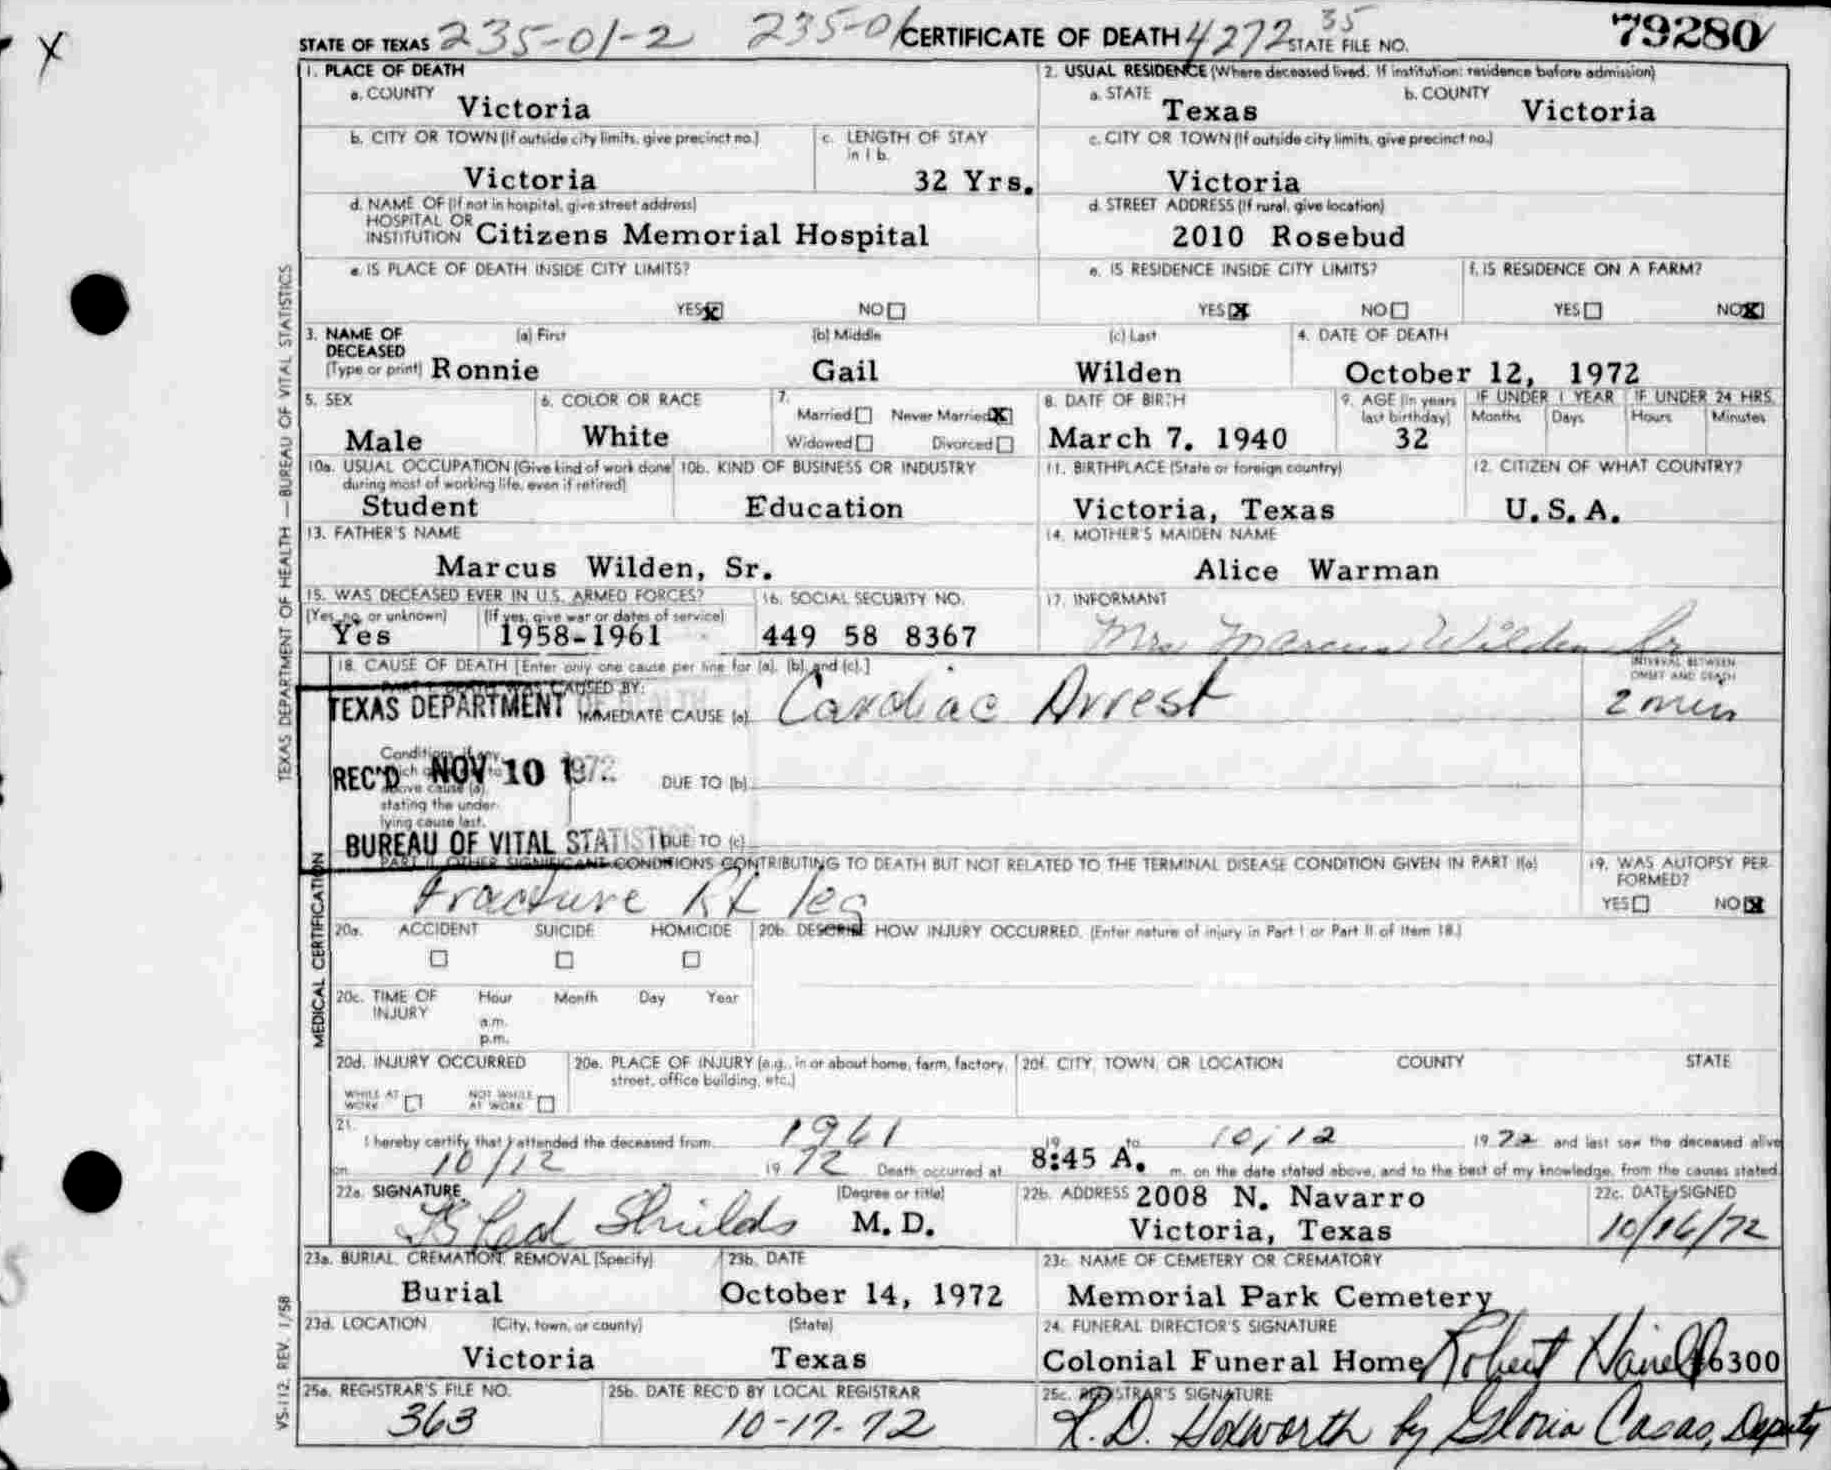 X
STATE OF TEXAS 235-01-2 235-01 CERTIFICATE OF DEATH 4272 35 STATE FILE NO. 79280
1. PLACE OF DEATH
a. COUNTY Victoria
2. USUAL RESIDENCE (Where deceased lived. If institution: residence before admission)
a. STATE Texas b. COUNTY Victoria
b. CITY OR TOWN (If outside city limits, give precinct no.) Victoria
c. LENGTH OF STAY in 1 b. 32 Yrs.
c. CITY OR TOWN (If outside city limits, give precinct no.) Victoria
d. NAME OF (If not in hospital, give street address)
HOSPITAL OR
INSTITUTION Citizens Memorial Hospital
d. STREET ADDRESS (If rural, give location)
2010 Rosebud
e. IS PLACE OF DEATH INSIDE CITY LIMITS?
YES X NO
e. IS RESIDENCE INSIDE CITY LIMITS?
YES X NO
f. IS RESIDENCE ON A FARM?
YES NO X
3. NAME OF DECEASED (Type or print)
(a) First Ronnie
(b) Middle Gail
(c) Last Wilden
4. DATE OF DEATH
October 12, 1972
5. SEX
Male
6. COLOR OR RACE
White
7. Married Never Married X
Widowed Divorced
8. DATE OF BIRTH
March 7. 1940
9. AGE (In years last birthday)
32
IF UNDER 1 YEAR Months Days
IF UNDER 24 HRS. Hours Minutes
10a. USUAL OCCUPATION (Give kind of work done during most of working life, even if retired)
Student
10b. KIND OF BUSINESS OR INDUSTRY
Education
11. BIRTHPLACE (State or foreign country)
Victoria, Texas
12. CITIZEN OF WHAT COUNTRY?
U.S.A.
13. FATHER'S NAME
Marcus Wilden, Sr.
14. MOTHER'S MAIDEN NAME
Alice Warman
15. WAS DECEASED EVER IN U.S. ARMED FORCES?
(Yes, no, or unknown) Yes
(If yes, give war or dates of service) 1958-1961
16. SOCIAL SECURITY NO.
449 58 8367
17. INFORMANT
Mrs Marcus Wilden Sr
18. CAUSE OF DEATH [Enter only one cause per line for (a), (b), and (c).]
INTERVAL BETWEEN ONSET AND DEATH
CAUSED BY:
IMMEDIATE CAUSE (a) Cardiac Arrest 2 min
TEXAS DEPARTMENT OF HEALTH
REC'D NOV 10 1972
BUREAU OF VITAL STATISTICS
Conditions, if any,
above cause (a),
stating the under-
lying cause last.
DUE TO (b)
DUE TO (c)
PART II. OTHER SIGNIFICANT CONDITIONS CONTRIBUTING TO DEATH BUT NOT RELATED TO THE TERMINAL DISEASE CONDITION GIVEN IN PART I(a)
Fracture Rt leg
19. WAS AUTOPSY PERFORMED?
YES NO X
20a. ACCIDENT SUICIDE HOMICIDE
20b. DESCRIBE HOW INJURY OCCURRED. (Enter nature of injury in Part I or Part II of Item 18.)
20c. TIME OF INJURY Hour Month Day Year
a.m.
p.m.
20d. INJURY OCCURRED
WHILE AT WORK NOT WHILE AT WORK
20e. PLACE OF INJURY (e.g., in or about home, farm, factory, street, office building, etc.)
20f. CITY, TOWN, OR LOCATION COUNTY STATE
21. I hereby certify that I attended the deceased from 1961 19 to 10/12 1972 and last saw the deceased alive
on 10/12 1972 Death occurred at 8:45 A. m. on the date stated above, and to the best of my knowledge, from the causes stated.
22a. SIGNATURE (Degree or title)
Shields M.D.
22b. ADDRESS 2008 N. Navarro
Victoria, Texas
22c. DATE SIGNED
10/16/72
23a. BURIAL, CREMATION, REMOVAL (Specify)
Burial
23b. DATE
October 14, 1972
23c. NAME OF CEMETERY OR CREMATORY
Memorial Park Cemetery
23d. LOCATION (City, town, or county) (State)
Victoria Texas
24. FUNERAL DIRECTOR'S SIGNATURE
Colonial Funeral Home Robert 6300
25a. REGISTRAR'S FILE NO.
363
25b. DATE REC'D BY LOCAL REGISTRAR
10-17-72
25c. REGISTRAR'S SIGNATURE
by Gloria Casas, Deputy
TEXAS DEPARTMENT OF HEALTH — BUREAU OF VITAL STATISTICS
MEDICAL CERTIFICATION
VS-112, REV. 1/58